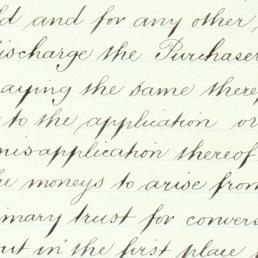 ld and for any other
discharge the Purchaser
aying the same there
to the application or
misapplication thereof
he moneys to arise from
imary trust for convers
out in the first place